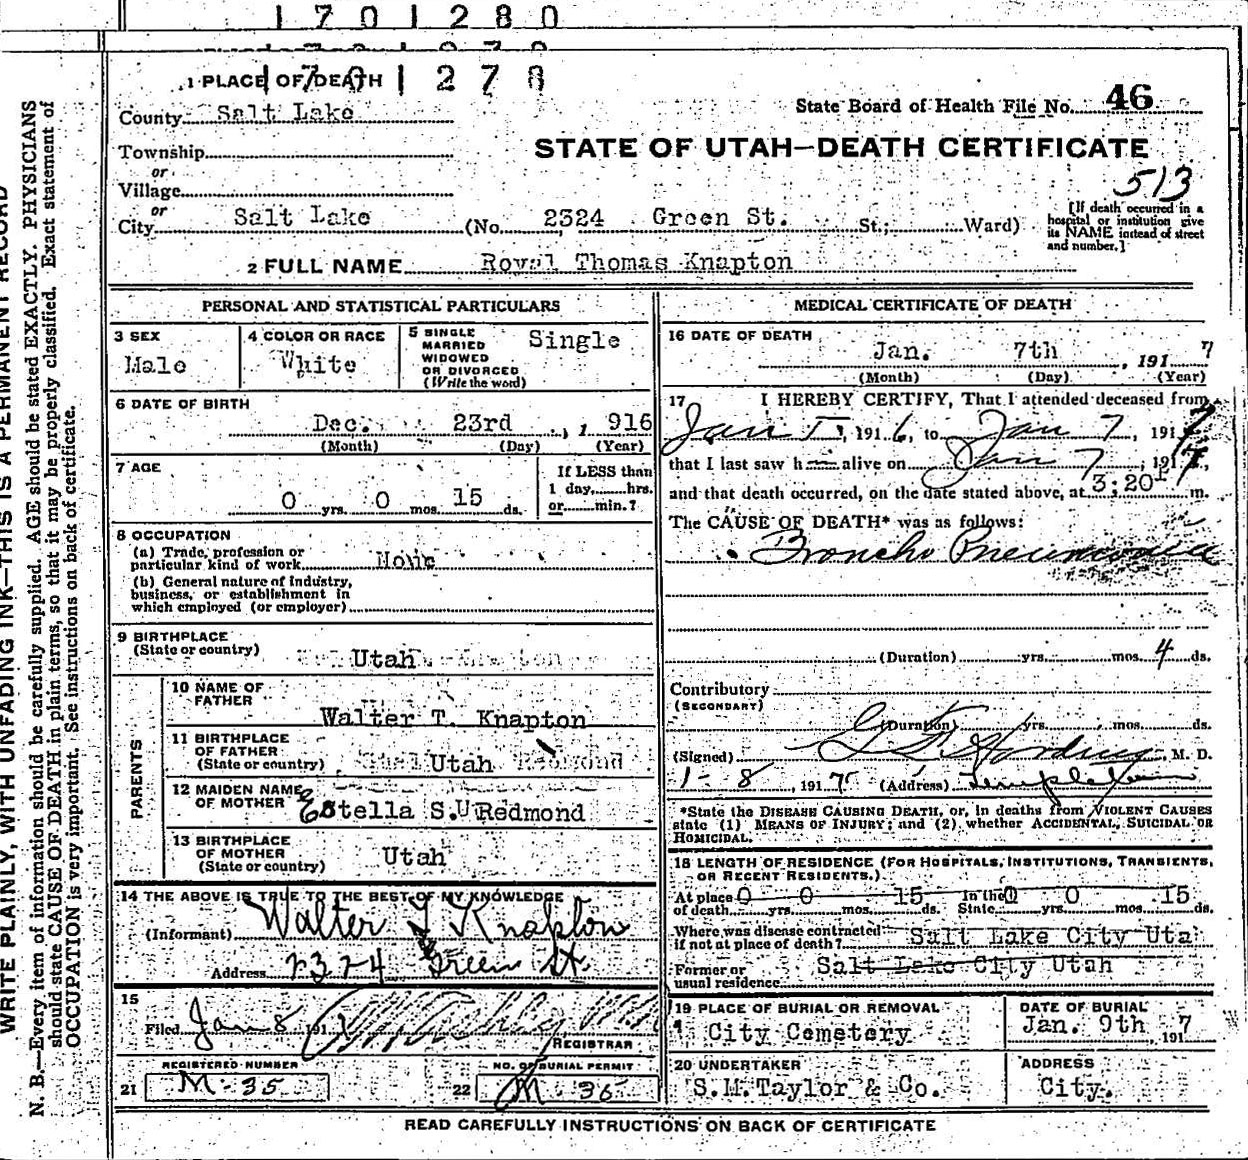 1701280
1701278
1 PLACE OF DEATH
County Salt Lake
State Board of Health File No. 46
Township
or
Village
or
STATE OF UTAH—DEATH CERTIFICATE
513
City Salt Lake (No. 2324 Green St. St.; Ward)
[If death occurred in a
hospital or institution give
its NAME instead of street
and number.]
2 FULL NAME Royal Thomas Knapton
PERSONAL AND STATISTICAL PARTICULARS
3 SEX
Male
4 COLOR OR RACE
White
5 SINGLE
MARRIED
WIDOWED
OR DIVORCED
(Write the word)
Single
6 DATE OF BIRTH
Dec. 23rd , 1 916
(Month) (Day) (Year)
7 AGE
0 yrs. 0 mos. 15 ds.
If LESS than
1 day, hrs.
or min.?
8 OCCUPATION
(a) Trade, profession or
particular kind of work None
(b) General nature of industry,
business, or establishment in
which employed (or employer)
9 BIRTHPLACE
(State or country)
Utah
PARENTS
10 NAME OF
FATHER
Walter T. Knapton
11 BIRTHPLACE
OF FATHER
(State or country)
Utah
12 MAIDEN NAME
OF MOTHER
Estella S. Redmond
13 BIRTHPLACE
OF MOTHER
(State or country)
Utah
14 THE ABOVE IS TRUE TO THE BEST OF MY KNOWLEDGE
(Informant) Walter T Knapton
Address 2324 Green St.
15
Filed Jan 8 191
REGISTRAR
REGISTERED NUMBER
21 M-35
NO. OF BURIAL PERMIT
22 M-36
MEDICAL CERTIFICATE OF DEATH
16 DATE OF DEATH
Jan. 7th , 191 7
(Month) (Day) (Year)
17 I HEREBY CERTIFY, That I attended deceased from
Jan , 191 6, to Jan 7, 191 7,
that I last saw h alive on Jan 7, 191 7,
and that death occurred, on the date stated above, at 3:20 m.
The CAUSE OF DEATH* was as follows:
Broncho Pneumonia
(Duration) yrs. mos. 4 ds.
Contributory
(SECONDARY)
(Duration) yrs. mos. ds.
(Signed) , M. D.
1-8, 191 7 (Address)
*State the DISEASE CAUSING DEATH, or, in deaths from VIOLENT CAUSES
state (1) MEANS OF INJURY; and (2) whether ACCIDENTAL, SUICIDAL OR
HOMICIDAL.
18 LENGTH OF RESIDENCE (FOR HOSPITALS, INSTITUTIONS, TRANSIENTS,
OR RECENT RESIDENTS.)
At place 0 0 15 In the 0 0 15
of death yrs. mos. ds. State yrs. mos. ds.
Where was disease contracted
if not at place of death? Salt Lake City Uta
Former or
usual residence Salt Lake City Utah
19 PLACE OF BURIAL OR REMOVAL
City Cemetery
DATE OF BURIAL
Jan. 9th , 191 7
20 UNDERTAKER
S.M.Taylor & Co.
ADDRESS
City.
READ CAREFULLY INSTRUCTIONS ON BACK OF CERTIFICATE
WRITE PLAINLY, WITH UNFADING INK—THIS IS A PERMANENT RECORD
N. B.—Every item of information should be carefully supplied. AGE should be stated EXACTLY. PHYSICIANS
should state CAUSE OF DEATH in plain terms, so that it may be properly classified. Exact statement of
OCCUPATION is very important. See instructions on back of certificate.